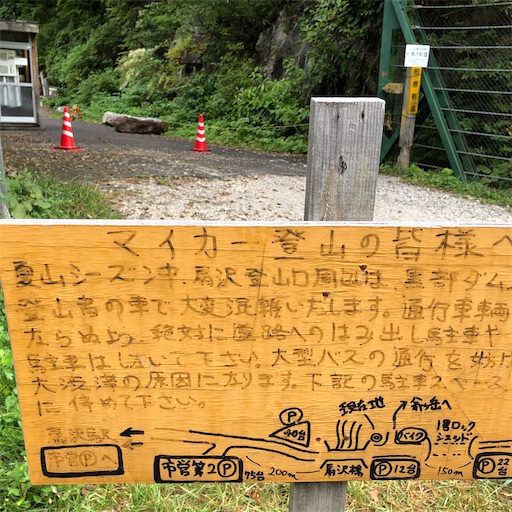 マイカー登山の皆様へ
夏山シーズン中、扇沢登山口周辺は、黒部ダム
登山者の車で大変混雑いたします。通行車輌
ならぬよう、絶対に道路へのはみ出し駐車や
駐車はしないで下さい。大型バスの通行を妨げ
大渋滞の原因になります。下記の駐車スペース
に停めて下さい。
扇沢駅
市営Ⓟへ
市営第2Ⓟ
75台
200m
Ⓟ
40台
扇沢橋
爺ヶ岳へ
バイク
Ⓟ12台
150m
Ⓟ22台